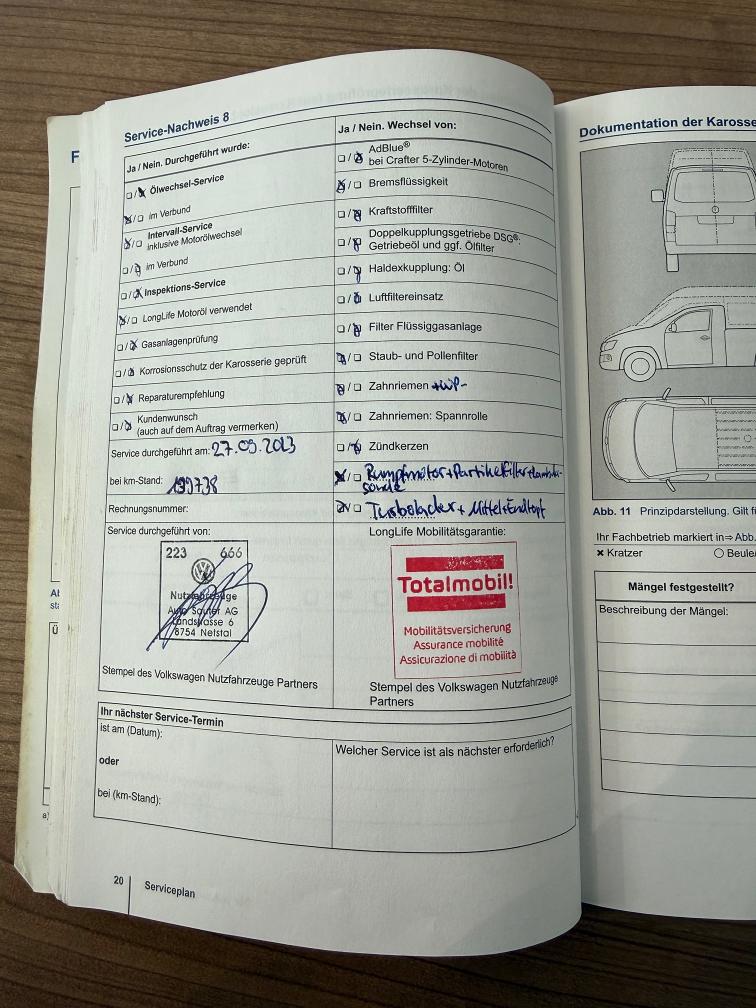 Service-Nachweis 8
Ja / Nein. Durchgeführt wurde:
Ölwechsel-Service
im Verbund
Intervall-Service
inklusive Motorölwechsel
im Verbund
Inspektions-Service
LongLife Motoröl verwendet
Gasanlagenprüfung
Korrosionsschutz der Karosserie geprüft
Reparaturempfehlung
Kundenwunsch
(auch auf dem Auftrag vermerken)
Service durchgeführt am: 27.09.2023
bei km-Stand: 199738
Rechnungsnummer:
Service durchgeführt von:
223 666
Nutzfahrzeuge
Auto Sauter AG
Landstrasse 6
8754 Netstal
Stempel des Volkswagen Nutzfahrzeuge Partners
Ja / Nein. Wechsel von:
AdBlue®
bei Crafter 5-Zylinder-Motoren
Bremsflüssigkeit
Kraftstofffilter
Doppelkupplungsgetriebe DSG®:
Getriebeöl und ggf. Ölfilter
Haldexkupplung: Öl
Luftfiltereinsatz
Filter Flüssiggasanlage
Staub- und Pollenfilter
Zahnriemen +WP
Zahnriemen: Spannrolle
Zündkerzen
Rumpfmotor+Partikelfilter+Lambda-
sonde
Turbolader + Mittel+Endtopf
LongLife Mobilitätsgarantie:
Totalmobil!
Mobilitätsversicherung
Assurance mobilité
Assicurazione di mobilità
Stempel des Volkswagen Nutzfahrzeuge
Partners
Ihr nächster Service-Termin
ist am (Datum):
oder
bei (km-Stand):
Welcher Service ist als nächster erforderlich?
20 Serviceplan
Dokumentation der Karosse
Abb. 11 Prinzipdarstellung. Gilt f
Ihr Fachbetrieb markiert in⇒Abb.
Kratzer
Beule
Mängel festgestellt?
Beschreibung der Mängel: